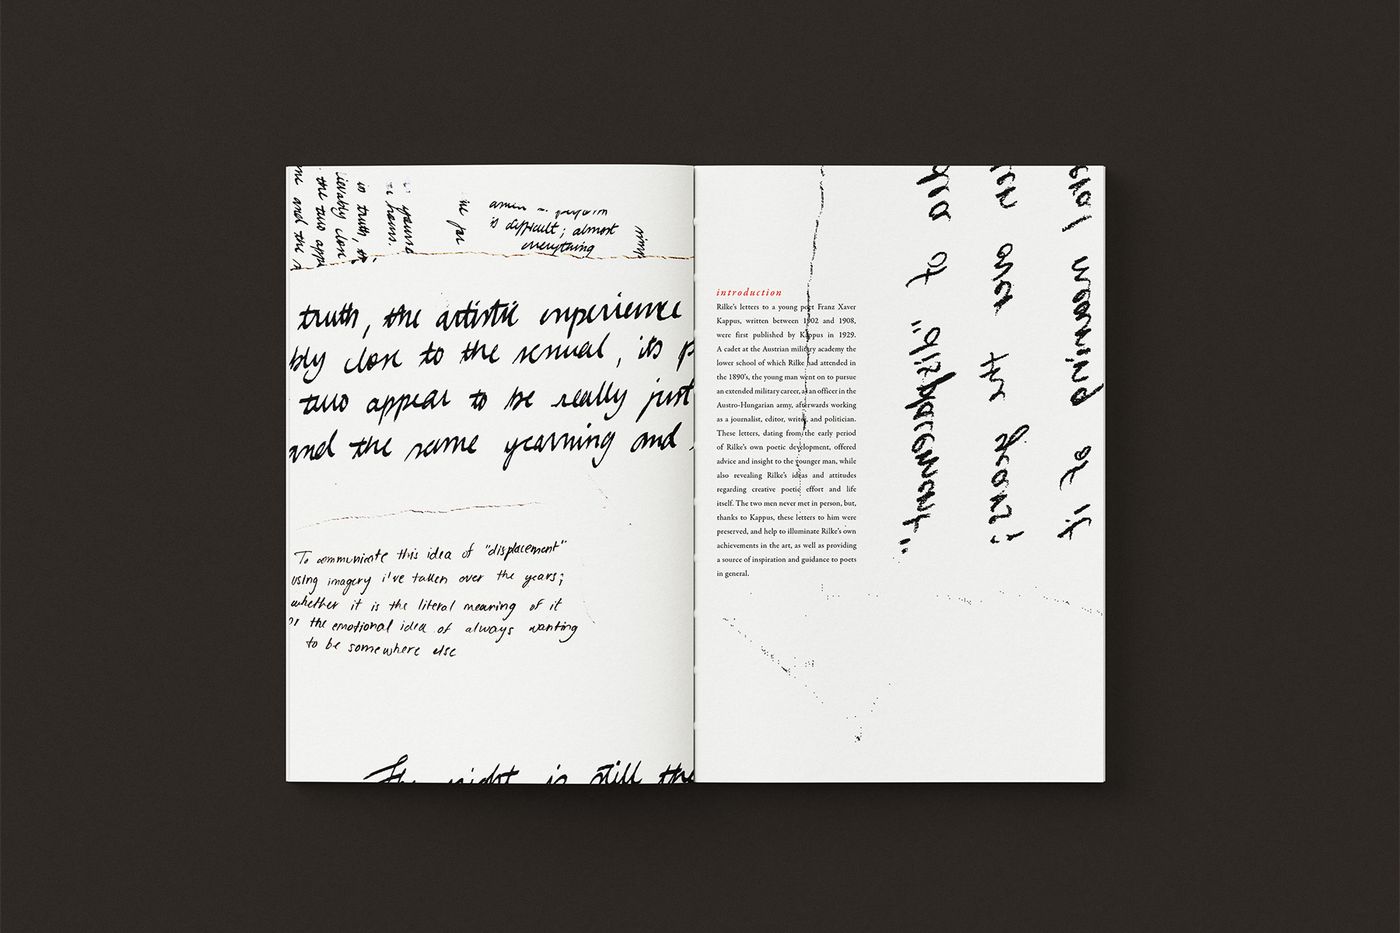 me and the
the two appe
ievably close
in truth, the
is difficult; almost
everything
truth, the artistic experience
bly close to the sexual, its p
two appear to be really just
and the same yearning and
To communicate this idea of "displacement"
using imagery i've taken over the years;
whether it is the literal meaning of it
or the emotional idea of always wanting
to be somewhere else
The night is still the
introduction
Rilke's letters to a young poet Franz Xaver
Kappus, written between 1902 and 1908,
were first published by Kappus in 1929.
A cadet at the Austrian military academy the
lower school of which Rilke had attended in
the 1890's, the young man went on to pursue
an extended military career, as an officer in the
Austro-Hungarian army, afterwards working
as a journalist, editor, writer, and politician.
These letters, dating from the early period
of Rilke's own poetic development, offered
advice and insight to the younger man, while
also revealing Rilke's ideas and attitudes
regarding creative poetic effort and life
itself. The two men never met in person, but,
thanks to Kappus, these letters to him were
preserved, and help to illuminate Rilke's own
achievements in the art, as well as providing
a source of inspiration and guidance to poets
in general.
dea of "displacement"
ken over the years;
eral meaning of it